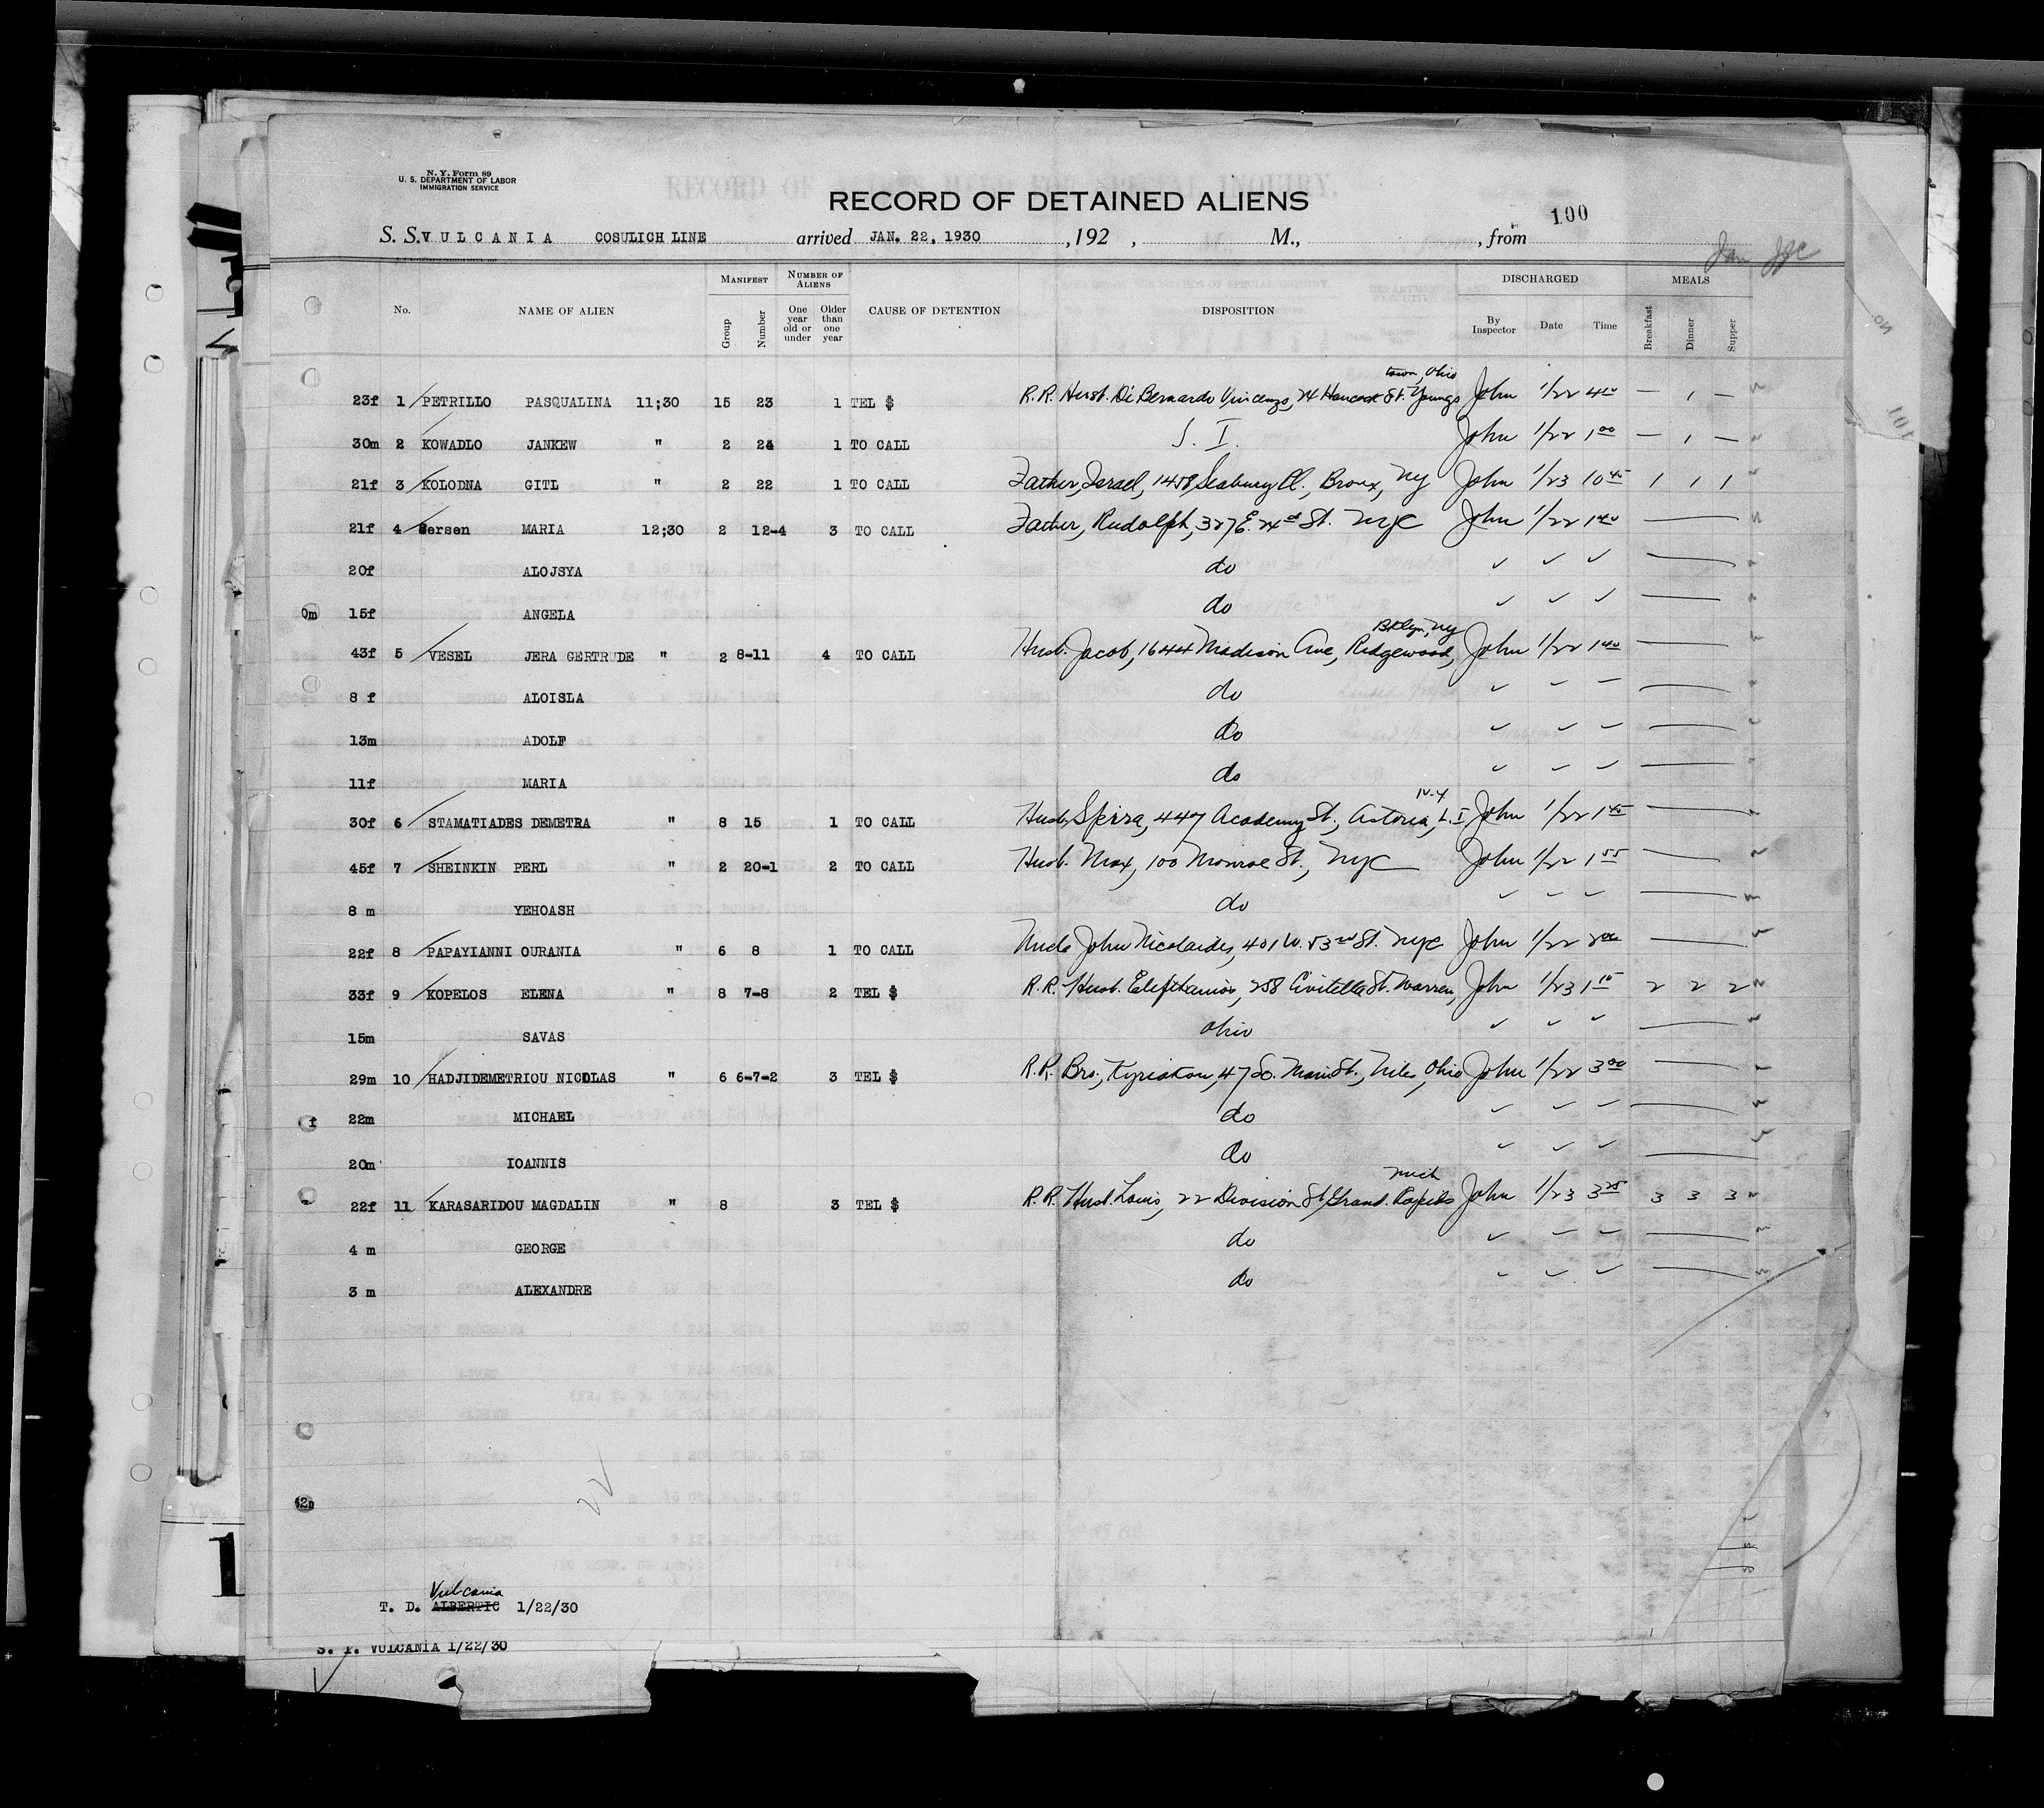 N. Y. Form 89
U. S. DEPARTMENT OF LABOR
IMMIGRATION SERVICE
RECORD OF DETAINED ALIENS
100
S. S. VULCANIA COSULICH LINE arrived JAN. 22, 1930 , 192 , M., , from
No. NAME OF ALIEN MANIFEST Group Number NUMBER OF ALIENS One year old or under Older than one year CAUSE OF DETENTION DISPOSITION DISCHARGED By Inspector Date Time MEALS Breakfast Dinner Supper
town, Ohio
23f 1 PETRILLO PASQUALINA 11;30 15 23 1 TEL $ R.R. Husb. Di Bernardo Vincenzo, 24 Hancock St. Youngs John 1/22 4 10 — 1 —
30m 2 KOWADLO JANKEW " 2 24 1 TO CALL S. I. John 1/22 1 00 — 1 —
21f 3 KOLODNA GITL " 2 22 1 TO CALL Father, Israel, 1458 Seabury Pl., Bronx, NY John 1/23 10 45 1 1 1
21f 4 Sersen MARIA 12;30 2 12-4 3 TO CALL Father, Rudolph, 327 E. 24 St. NYC John 1/22 1 40 —
20f ALOJSYA do ✓ ✓ ✓ —
0m 15f ANGELA do ✓ ✓ ✓ —
Bklyn, NY
43f 5 VESEL JERA GERTRUDE " 2 8-11 4 TO CALL Husb. Jacob, 1644 Madison Ave, Ridgewood, John 1/22 1 40 —
8 f ALOISLA do ✓ ✓ ✓ —
13m ADOLF do ✓ ✓ ✓ —
11f MARIA do ✓ ✓ ✓ —
N.Y
30f 6 STAMATIADES DEMETRA " 8 15 1 TO CALL Husb. Spirra, 447 Academy St., Astoria, L.I John 1/22 1 45 —
45f 7 SHEINKIN PERL " 2 20-1 2 TO CALL Husb. Max, 100 Monroe St., NYC John 1/22 1 55 —
8 m YEHOASH do ✓ ✓ ✓ —
22f 8 PAPAYIANNI OURANIA " 6 8 1 TO CALL Uncle John Nicolaides, 401 W. 53rd St. NYC John 1/22 2 00 —
33f 9 KOPELOS ELENA " 8 7-8 2 TEL $ R.R. Husb. 258 Civitella St. Warren, John 1/23 1 15 2 2 2
15m SAVAS Ohio ✓ ✓ ✓ —
29m 10 HADJIDEMETRIOU NICOLAS " 6 6-7-2 3 TEL $ R.R. Bro., Kyriakou, 47 So. Main St., Niles, Ohio John 1/22 3 00 —
f 22m MICHAEL do ✓ ✓ ✓ —
20m IOANNIS do ✓ ✓ ✓ —
Mich
22f 11 KARASARIDOU MAGDALIN " 8 3 TEL $ R.R. Husb. Louis, 22 Division St Grand Rapids John 1/23 3 25 3 3 3
4 m GEORGE do ✓ ✓ ✓ —
3 m ALEXANDRE do ✓ ✓ ✓ —
Vulcania
T. D. ALBERTIC 1/22/30
S. I. VULCANIA 1/22/30